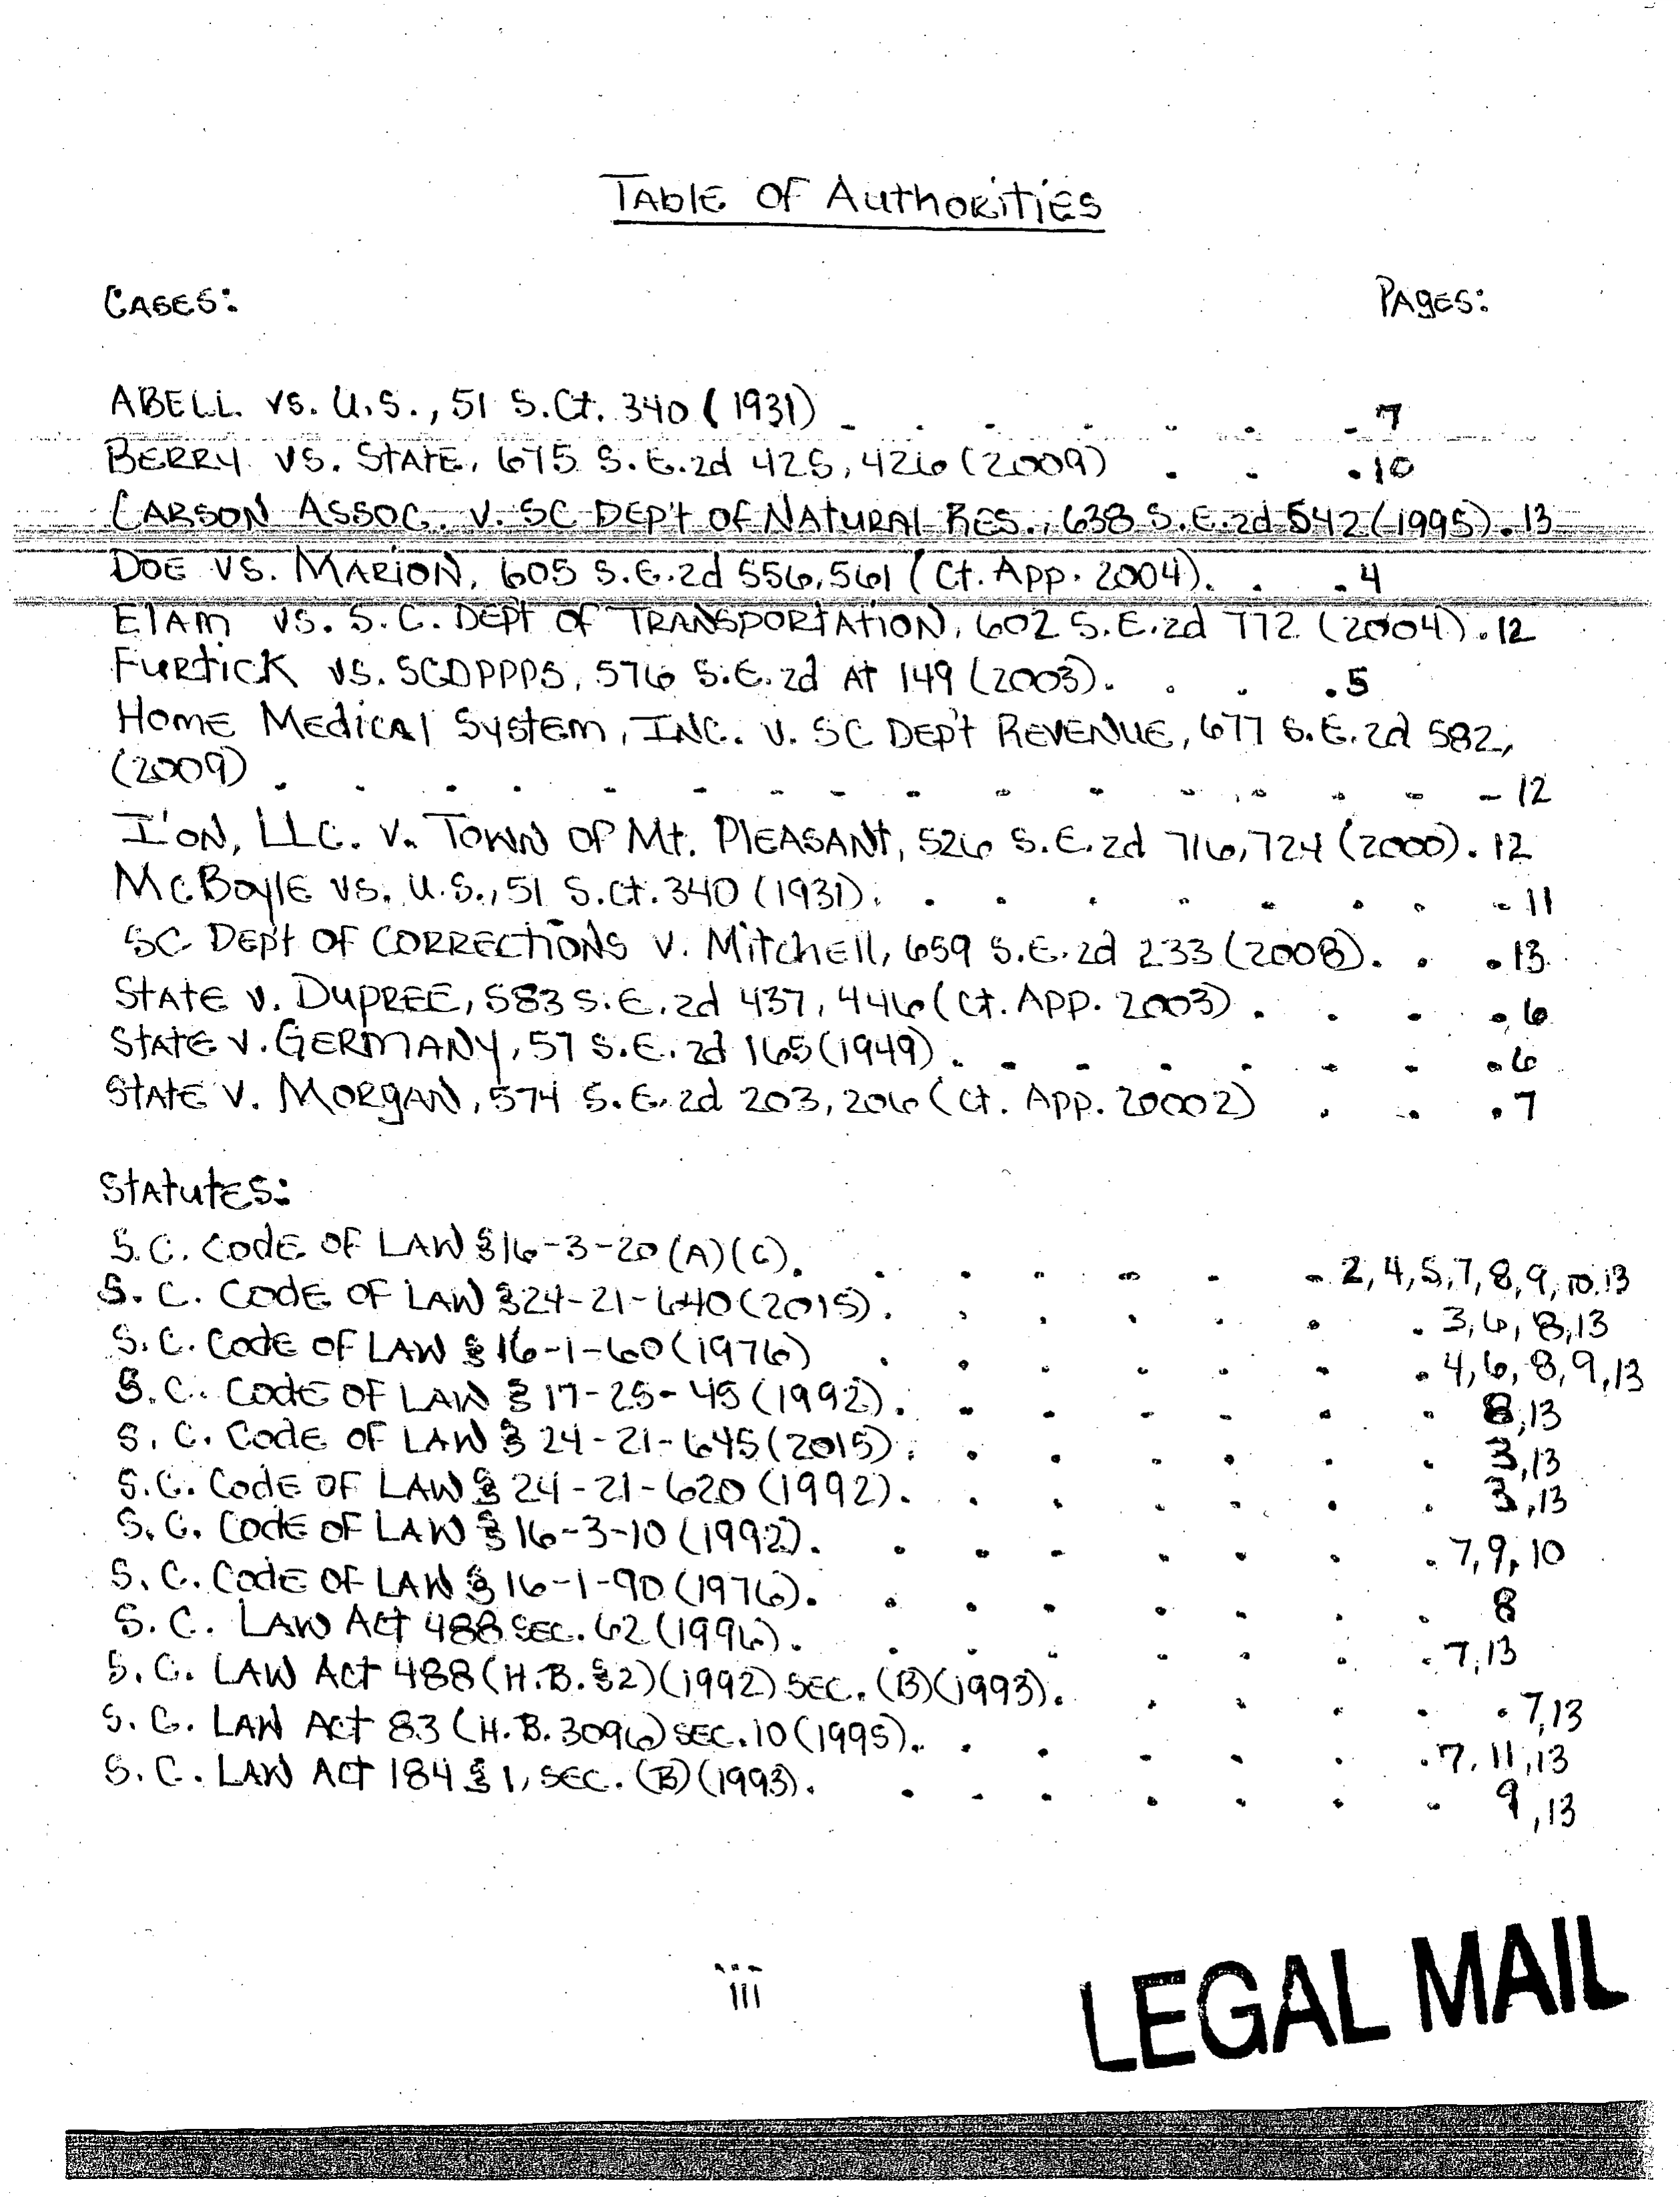 Table of Authorities
Cases: Pages:
ABELL vs. U.S., 51 S.Ct. 340 (1931) . . . . . . . 7
BERRY vs. STATE, 675 S.E.2d 425, 426 (2009) . . . 10
CARSON ASSOC. v. SC DEP't of NATURAL RES., 638 S.E.2d 542 (1995) . 13
DOE vs. MARION, 605 S.E.2d 556, 561 (Ct. App. 2004) . . . 4
Elam vs. S.C. DEPt of TRANSPORTATION, 602 S.E.2d 772 (2004) . 12
Furtick vs. SCDPPPS, 576 S.E.2d At 149 (2003) . . . . 5
Home Medical System, INC. v. SC DEP't REVENUE, 677 S.E.2d 582,
(2009) . . . . . . . . . . . . . . . 12
I'ON, LLC. v. Town of Mt. Pleasant, 526 S.E.2d 716, 724 (2000) . 12
McBoyle vs. U.S., 51 S.Ct. 340 (1931) . . . . . . . . 11
SC DEPt of CORRECTIONS v. Mitchell, 659 S.E.2d 233 (2008) . . . 13
STATE v. DUPREE, 583 S.E.2d 437, 446 (Ct. App. 2003) . . . . 6
STATE v. GERMANY, 57 S.E.2d 165 (1949) . . . . . . . 6
STATE v. MORGAN, 574 S.E.2d 203, 206 (Ct. App. 20002) . . . 7
Statutes:
S.C. Code of LAW § 16-3-20 (A)(C) . . . . . . . 2, 4, 5, 7, 8, 9, 10, 13
S.C. Code of LAW § 24-21-640 (2015) . . . . . . . 3, 6, 8, 13
S.C. Code of LAW § 16-1-60 (1976) . . . . . . . 4, 6, 8, 9, 13
S.C. Code of LAW § 17-25-45 (1992) . . . . . . . 8, 13
S.C. Code of LAW § 24-21-645 (2015) . . . . . . . 3, 13
S.C. Code of LAW § 24-21-620 (1992) . . . . . . . 3, 13
S.C. Code of LAW § 16-3-10 (1992) . . . . . . . 7, 9, 10
S.C. Code of LAW § 16-1-90 (1976) . . . . . . . 8
S.C. LAW Act 488 SEC. 62 (1996) . . . . . . . 7, 13
S.C. LAW Act 488 (H.B. § 2) (1992) SEC. (B) (1993) . . . . . . 7, 13
S.C. LAW Act 83 (H.B. 3096) SEC. 10 (1995) . . . . . . . 7, 11, 13
S.C. LAW Act 184 § 1, SEC. (B) (1993) . . . . . . . 9, 13
iii
LEGAL MAIL